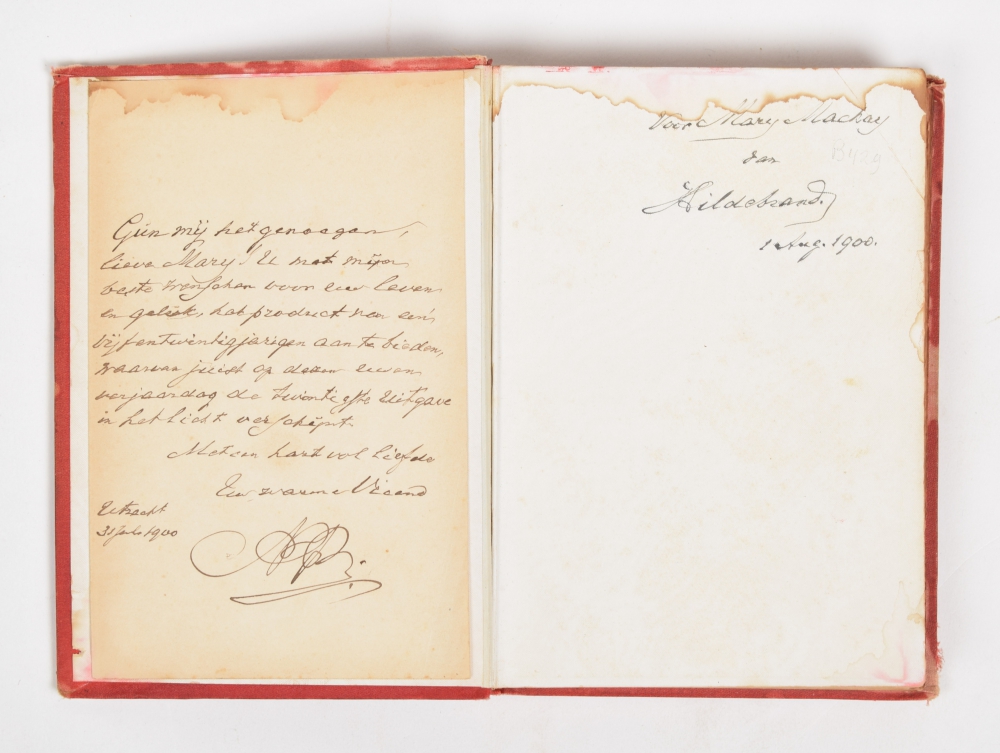 Gun mij het genoegen,
lieve Mary! U met mijn
beste wenschen voor uw leven
en geluk, het product van een
vijfentwintigjarigen aan te bieden,
waarvan juist op dezen uwen
verjaardag de twintigste uitgave
in het licht verschijnt.
Met een hart vol liefde
Uw warme Vriend
Utrecht
31 July 1900
Voor Mary Mackay
van
B429
Hildebrand.
1 Aug. 1900.